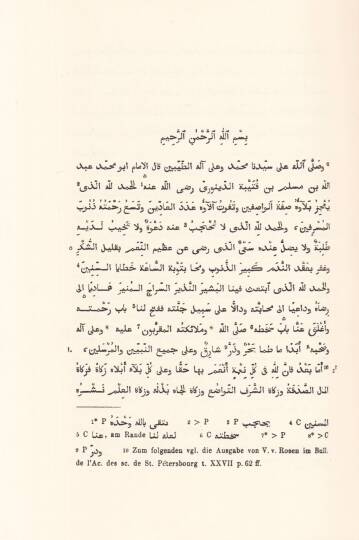 بسم الله الرحمن الرحيم
وصلى الله على سيدنا محمد وعلى آله الطيبين قال الامام ابو محمد عبد
الله بن مسلم بن قتيبة الدينورى رضى الله عنه الحمد لله الذى
يعجز بلاؤه صفة الواصفين وتفوت آلاؤه عدد العادين وتسع رحمته ذنوب
المسرفين والحمد لله الذى لا تحتجب عنه دعوة ولا تخيب لديه
طلبة ولا يضل عنده سعى الذى رضى عن عظيم النعم بقليل الشكر ٥
وغفر بعقد الندم كبير الذنوب ومحا بتوبة الساعة خطايا السنين
والحمد لله الذى ابتعث فينا البشير النذير السراج المنير هاديا الى
رضاه وداعيا الى محابه ودالا على سبيل جنته ففتح لنا باب رحمته
وأغلق عنا باب سخطه صلى الله وملائكته المقربون عليه وعلى آله
وصحبه أبدا ما طما بحر وذر شارق وعلى جميع النبيين والمرسلين ١٠
أما بعد فان لله فى كل نعمة أنعم بها حقا وعلى كل بلاء أبلاه زكاة فزكاة
المال الصدقة وزكاة الشرف التواضع وزكاة الجاه بذله وزكاة العلم نشره
1* P نثقى بالله وحده 2 > P 3 P يحاجب 4 C المصنين
5 C عنا, am Rande لعله لنا 6 C سخطته 7* > P 8* > C
9 P ودر 10 Zum folgenden vgl. die Ausgabe von V. v. Rosen im Bull.
de l'Ac. des sc. de St. Pétersbourg t. XXVII p. 62 ff.